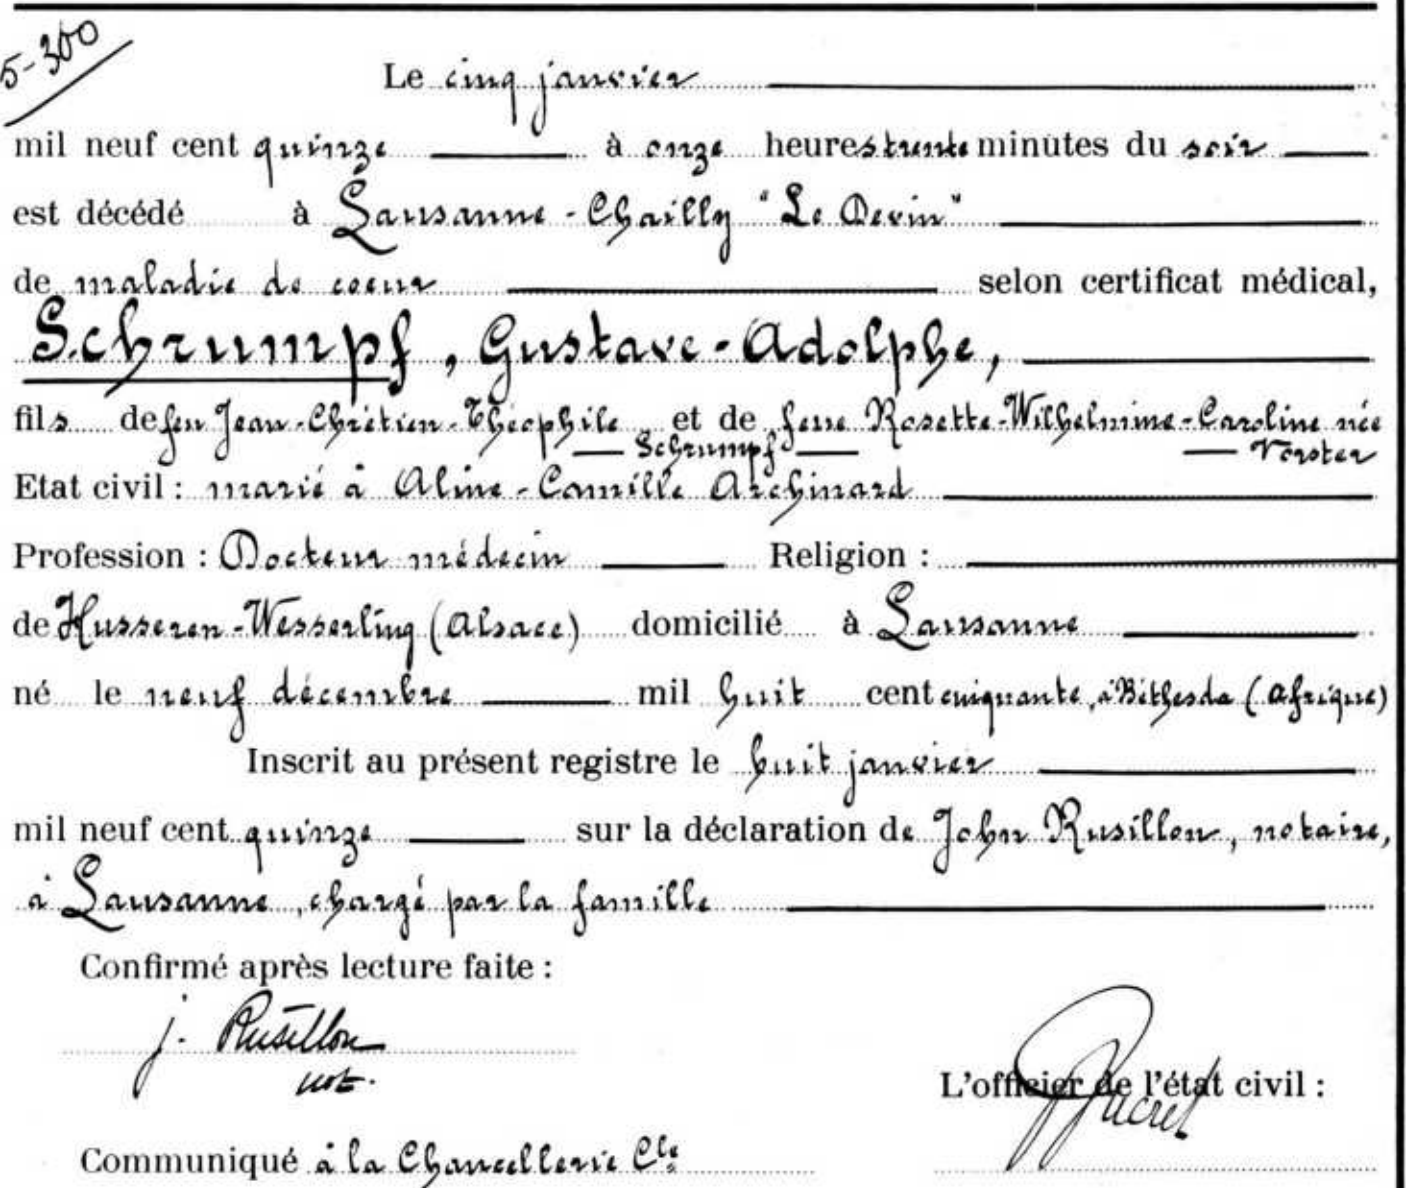 5-300
Le cinq janvier
mil neuf cent quinze à onze heures trente minutes du soir
est décédé à Lausanne-Chailly "Le Devin"
de maladie de coeur selon certificat médical,
Schrumpf, Gustave-Adolphe,
fils de feu Jean-Chrétien-Théophile et de feue Rosette-Wilhelmine-Caroline née
Schrumpf Vorster
Etat civil : marié à Aline-Camille Archinard
Profession : Docteur médecin Religion :
de Husseren-Wesserling (Alsace) domicilié à Lausanne
né le neuf décembre mil huit cent cinquante, à Béthesda (Afrique)
Inscrit au présent registre le huit janvier
mil neuf cent quinze sur la déclaration de John Rusillon, notaire,
à Lausanne, chargé par la famille
Confirmé après lecture faite :
J. Rusillon
not.
L'officier de l'état civil :
Ducret
Communiqué à la Chancellerie Cle